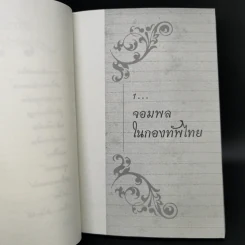 ๑...
จอมพล
ในกองทัพไทย